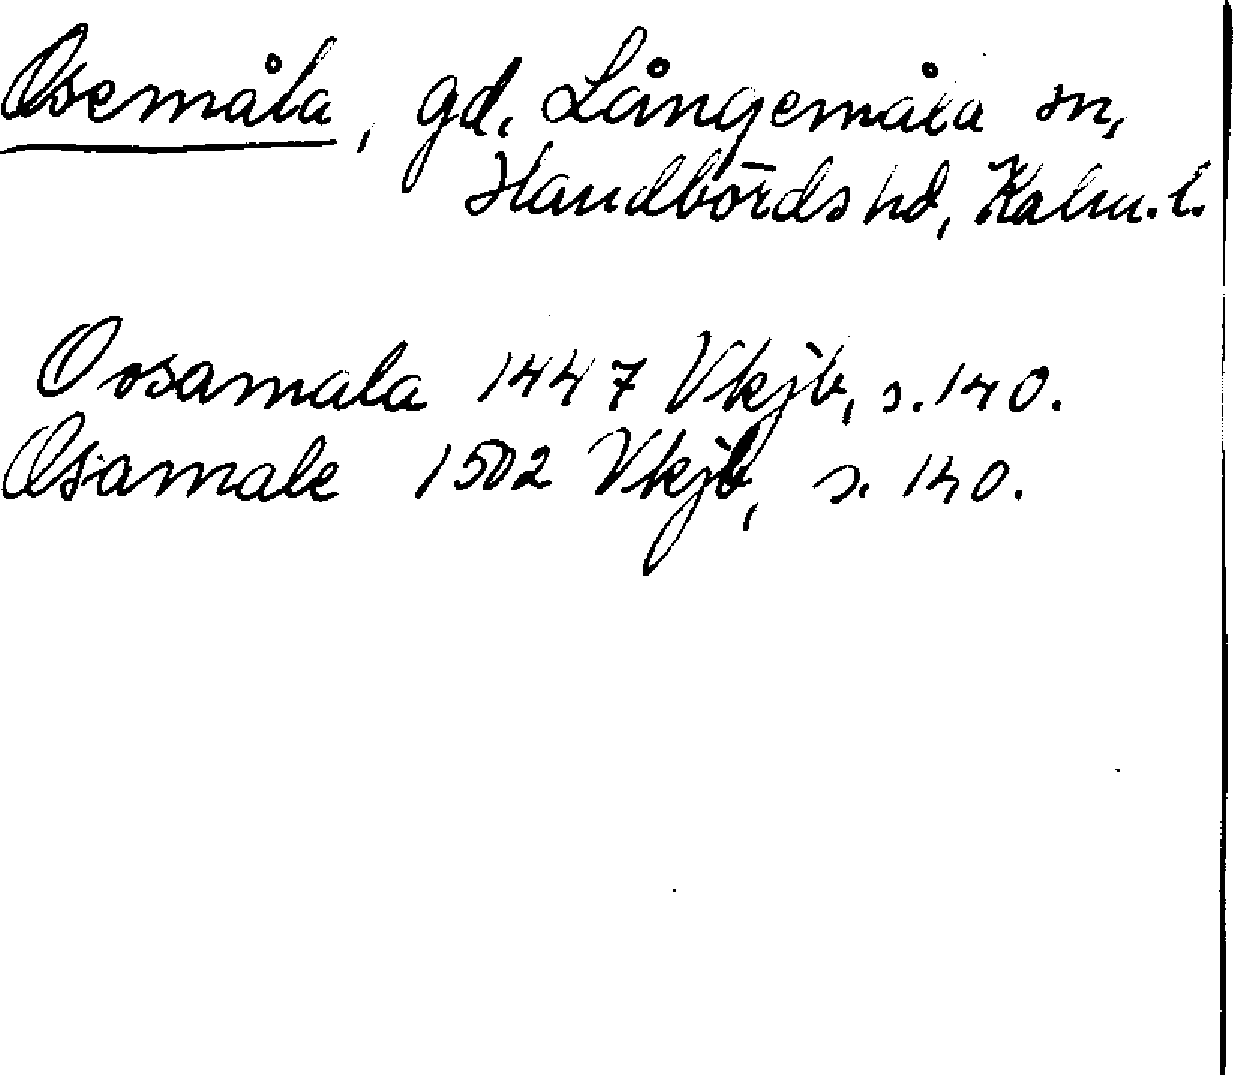 Osemåla, gd, Långemåla sn,
Handbörds hd, Kalm. l.
Oosamala 1447 Vkjb, s. 140.
Osamale 1502 Vkjb, s. 140.